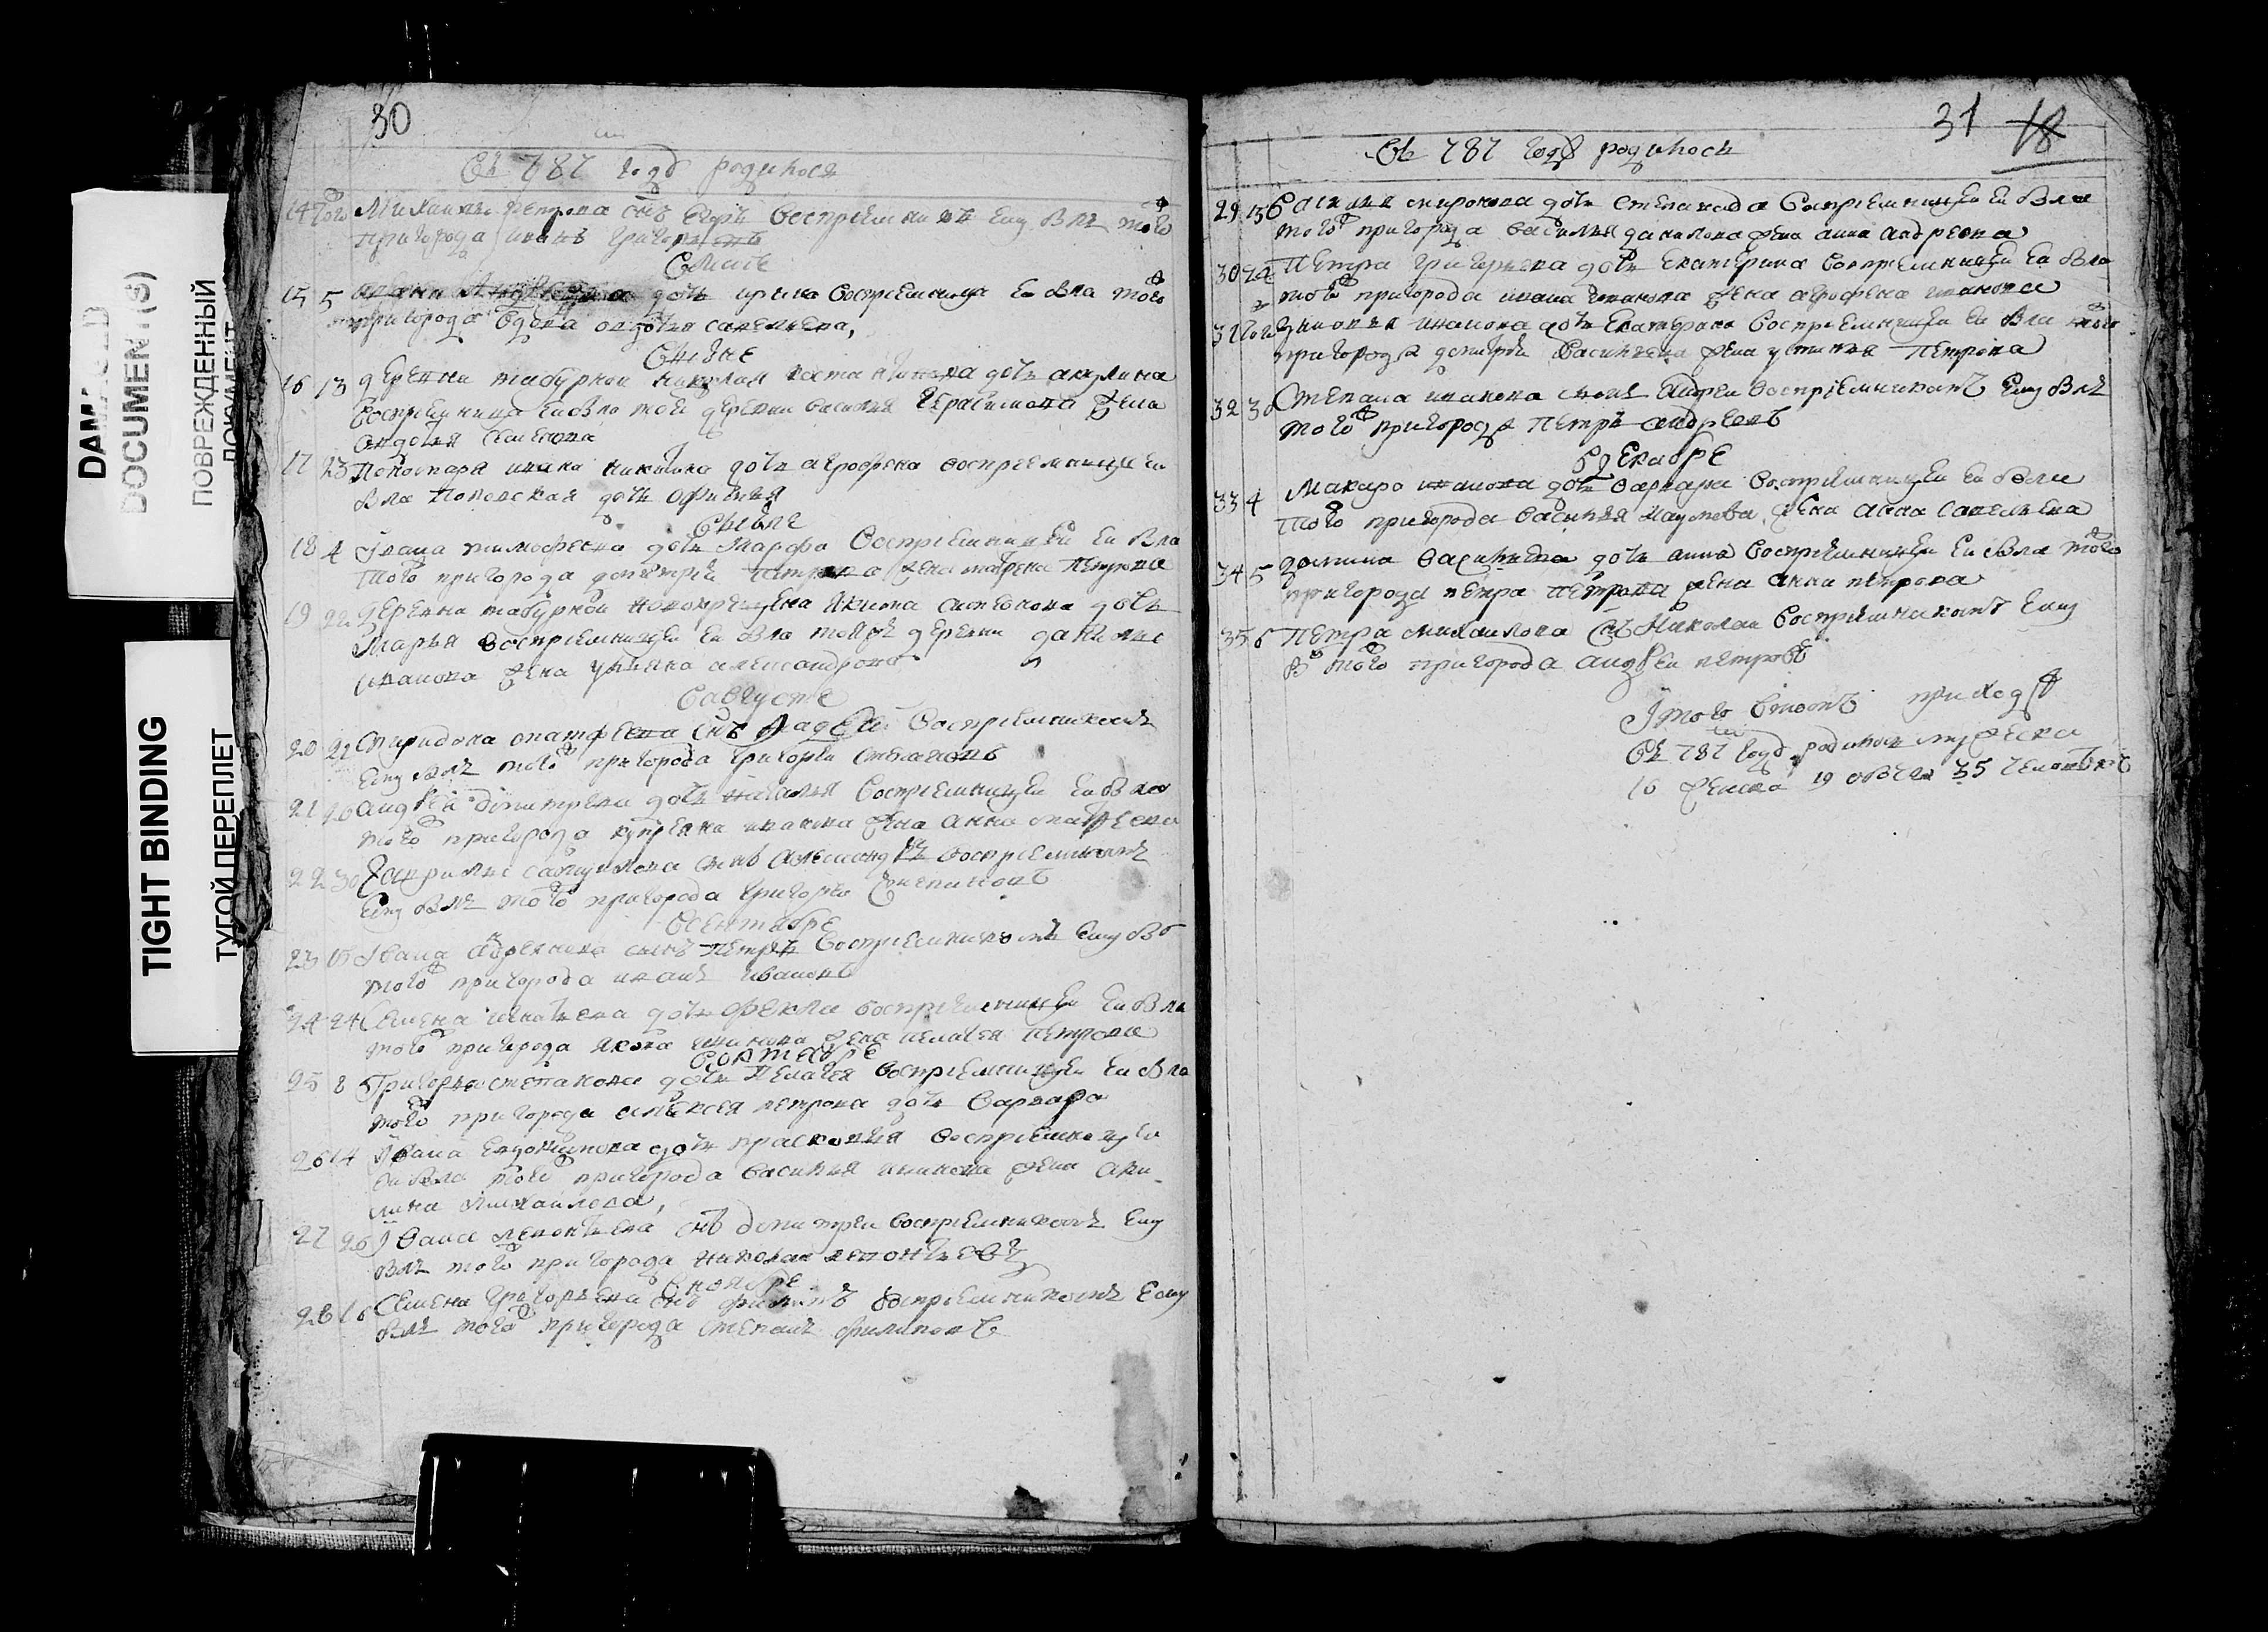 DAMAGED
DOCUMENT(S)
ПОВРЕЖДЕННЫЙ
ДОКУМЕНТ
TIGHT BINDING
ТУГОЙ ПЕРЕПЛЕТ
30
Въ 787 году родилося
14 того Михаила Петрова снъ Егоръ восприемникомъ ему былъ того
пригорода иванъ григорьевъ
В маие
15 5 дочь ирина восприемница ея была того
пригорода вдова авдотья савельева,
В июне
16 13 деревни табурной николая дочь акулина
восприемница ея была той деревни василья герасимова жена
авдотья семенова
17 23 Понамаря ивана никитина дочь аграфена восприемницеи ея
была поповская дочь офимья
В июле
18 4 Ивана тимофеева дочь Марфа восприемницеи ея была
того пригорода дмитрия петрова жена матрена петрова
19 22 деревни табурной новокрещена якима дочь
Марья восприемницеи ея была тойже деревни данилы
иванова жена ульяна александрова
В августе
20 22 Спиридона снъ Фадей восприемникомъ
ему былъ того пригорода григорей степановъ
21 26 андрея дмитрева дочь наталья восприемницеи ея была
того пригорода иванова жена анна матвеева
22 30 Гаврилы самуилова сынъ александръ восприемникомъ
ему былъ того пригорода григорей
В сентябре
23 15 Ивана сынъ Петръ восприемникомъ ему бы
того пригорода иванъ ивановъ
24 24 Семена игнатьева дочь фекла восприемницеи ея была
того пригорода якова жена пелагея петрова
В октябре
25 8 Григорья степанова дочь Пелагея восприемницеи ея была
того пригорода алексея петрова дочь варвара
26 14 Ивана евдокимова дочь прасковья восприемницеи
ея была того пригорода василья иванова жена аку-
лина михайлова,
27 26 Ивана леонтьева снъ дмитреи восприемникомъ ему
былъ того пригорода николаи леонтьевъ
В ноябре
28 16 Семена григорьева снъ филипъ восприемникомъ ему
былъ того пригорода степанъ филиповъ
31 18
Въ 787 году родилось
29 13 василья миронова дочь степанида восприемницеи ея была
того пригорода василья данилова жена анна андреева
30 24 Петра григорьева дочь екатерина восприемницеи ея была
того пригорода ивана иванова жена аграфена иванова
31 того зиновья иванова дочь Екатерина восприемницеи ея была того
пригорода дмитрея васильева жена устинья петрова
32 30 Степана иванова сынъ андреи восприемникомъ ему былъ
того пригорода петръ андреевъ
В декабре
33 4 Макара иванова дочь варвара восприемницеи ея была
того пригорода василья наумова жена анна савельева
34 5 васильева дочь анна восприемницеи ея была того
пригорода петра петрова жена анна петрова
35 6 Петра михаилова снъ Николаи восприемникомъ ему
бы того пригорода андреи петровъ
Итого въ томъ приходе
въ 787 году родилось мужеска
16 женска 19 обоего 35 человекъ